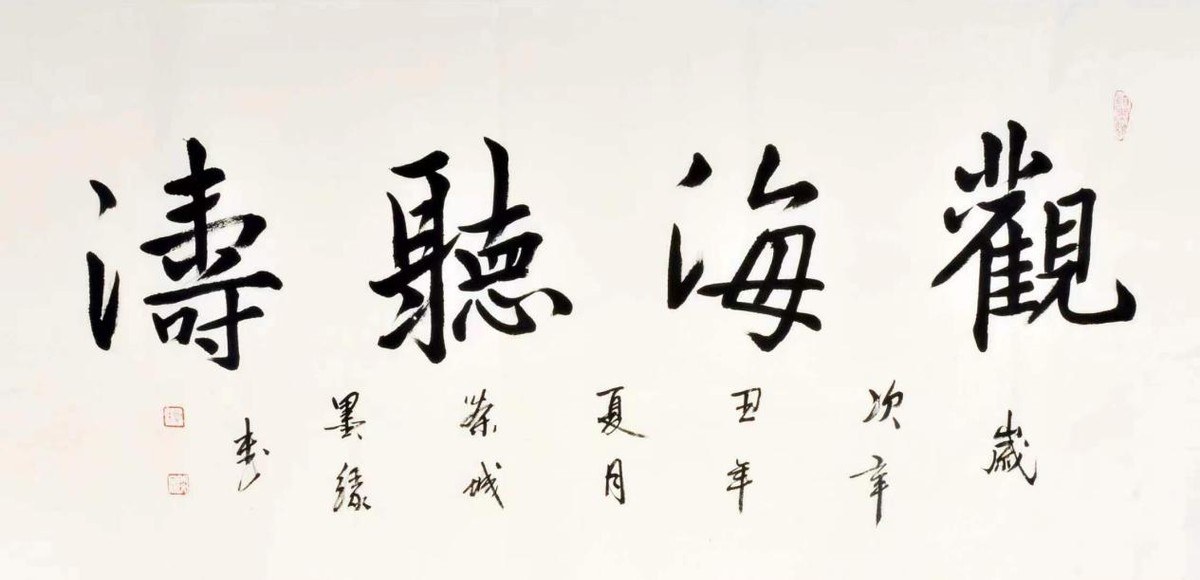 觀海聽濤
歲次辛丑年夏月荣城墨緣書